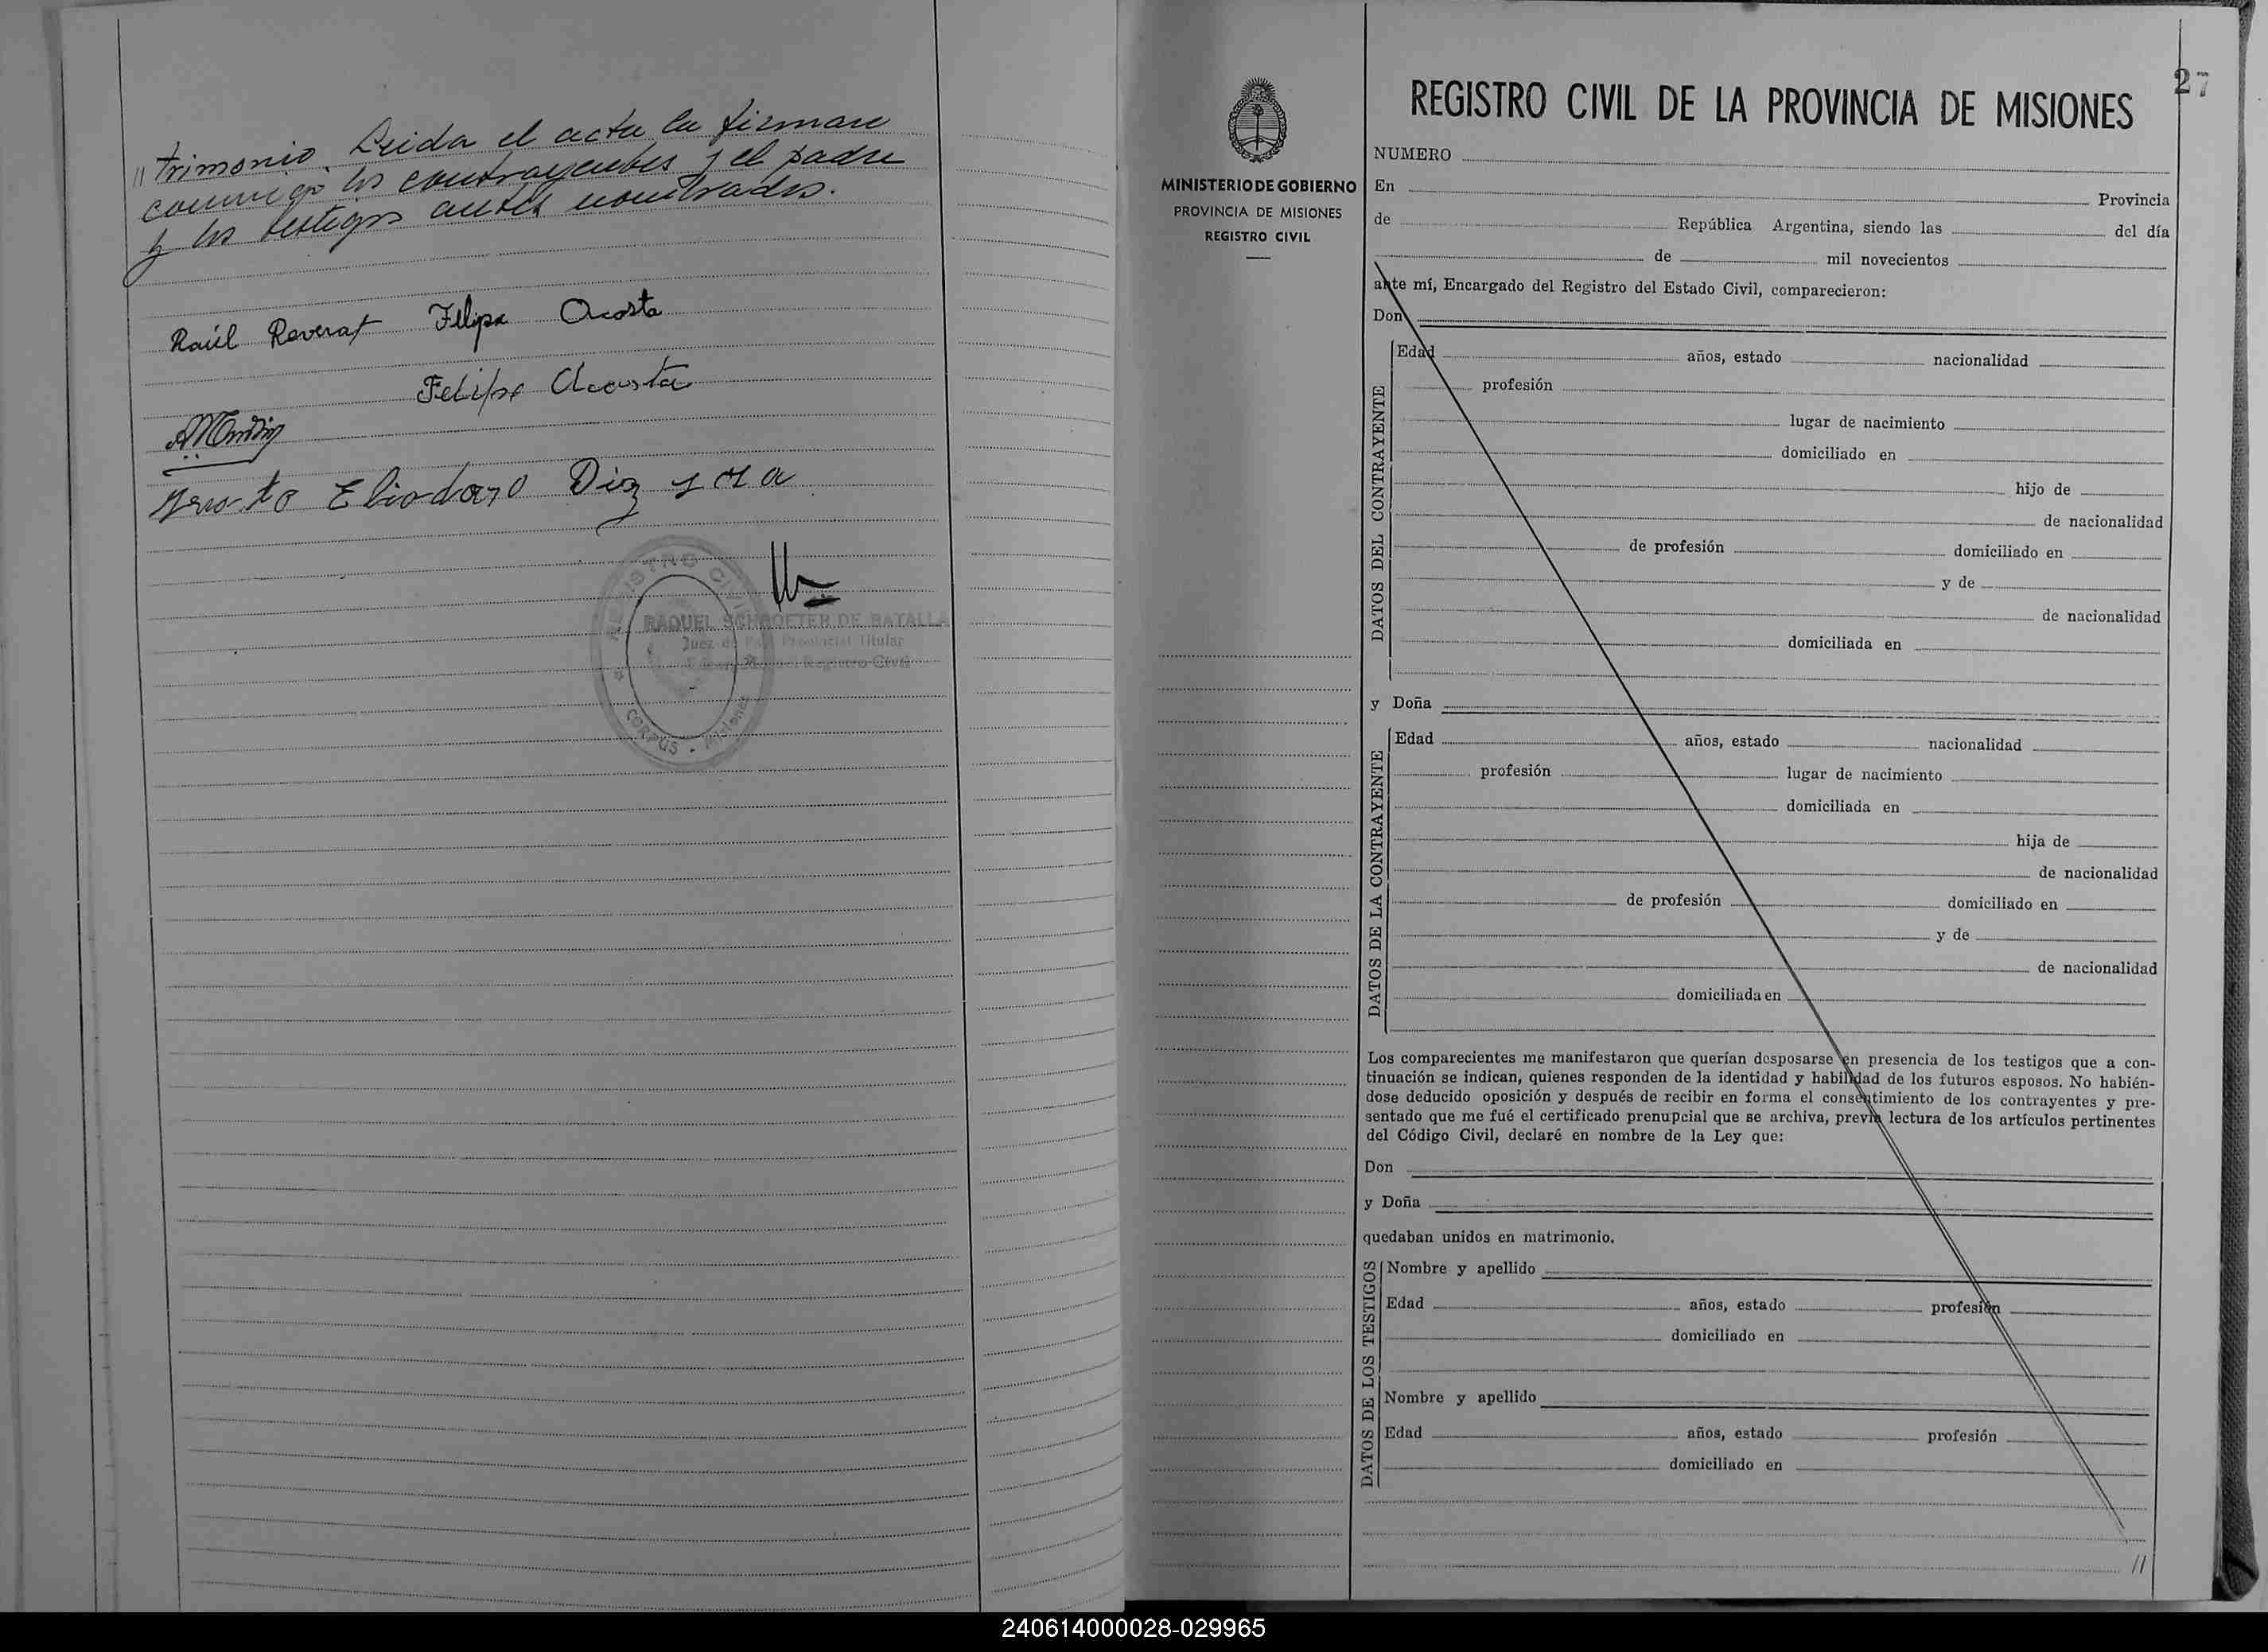 " trimonio. Leida el acta la firman
conmigo los contrayentes y el padre
y los testigos antes nombrados.
Raúl Reverat Felipa Acosta
Felipe Acosta
Eliodoro
REGISTRO CIVIL
RAQUEL SCHROETER DE BATALLA
Juez de Paz Provincial Titular
Registro Civil
CORPUS - Misiones
27
MINISTERIO DE GOBIERNO
PROVINCIA DE MISIONES
REGISTRO CIVIL
REGISTRO CIVIL DE LA PROVINCIA DE MISIONES
NUMERO
En Provincia
de República Argentina, siendo las del día
de mil novecientos
ante mí, Encargado del Registro del Estado Civil, comparecieron:
Don
DATOS DEL CONTRAYENTE
Edad años, estado nacionalidad
profesión
lugar de nacimiento
domiciliado en
hijo de
de nacionalidad
de profesión domiciliado en
y de
de nacionalidad
domiciliada en
y Doña
DATOS DE LA CONTRAYENTE
Edad años, estado nacionalidad
profesión lugar de nacimiento
domiciliada en
hija de
de nacionalidad
de profesión domiciliado en
y de
de nacionalidad
domiciliada en
Los comparecientes me manifestaron que querían desposarse en presencia de los testigos que a con-
tinuación se indican, quienes responden de la identidad y habilidad de los futuros esposos. No habién-
dose deducido oposición y después de recibir en forma el consentimiento de los contrayentes y pre-
sentado que me fué el certificado prenupcial que se archiva, previa lectura de los artículos pertinentes
del Código Civil, declaré en nombre de la Ley que:
Don
y Doña
quedaban unidos en matrimonio.
DATOS DE LOS TESTIGOS
Nombre y apellido
Edad años, estado profesión
domiciliado en
Nombre y apellido
Edad años, estado profesión
domiciliado en
//
240614000028-029965